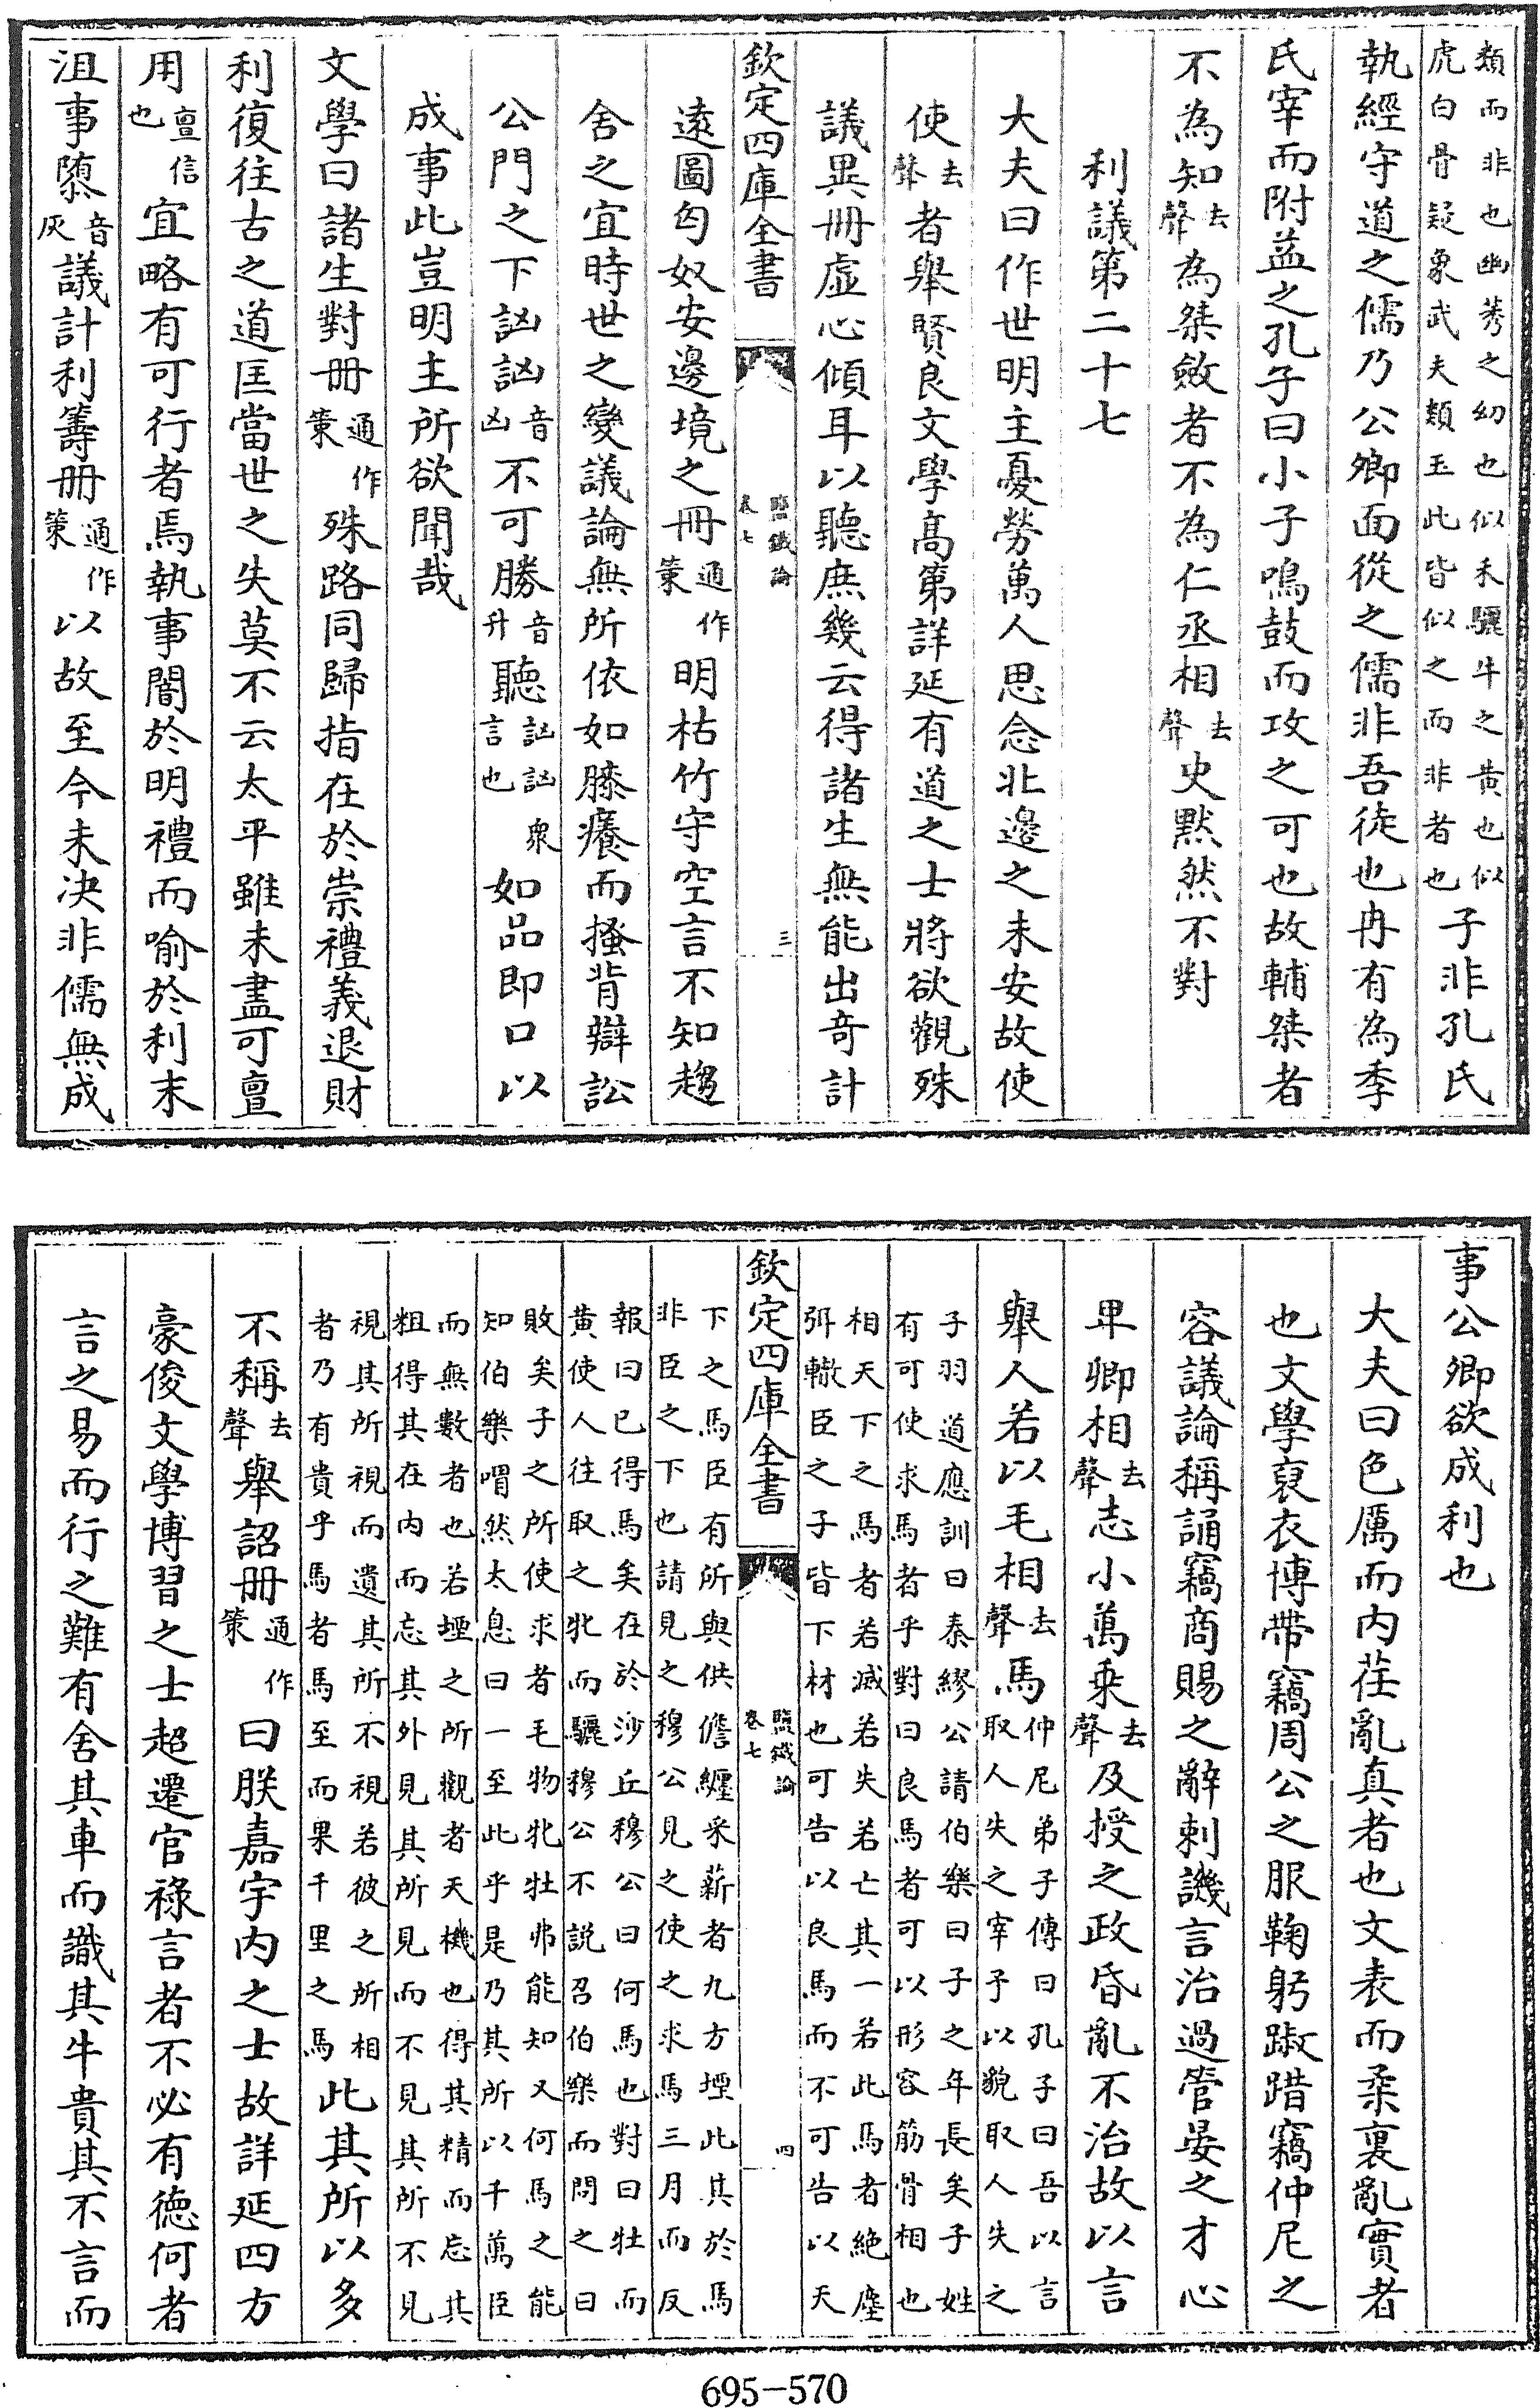 類而非也幽莠之幼也似禾驪牛之黄也似虎白骨疑象武夫類玉此皆似之而非者也子非孔氏
執經守道之儒乃公卿面從之儒非吾徒也冉有為季
氏宰而附益之孔子曰小子鳴鼓而攻之可也故輔桀者
不為知去聲為桀斂者不為仁丞相去聲史黙然不對
利議第二十七
大夫曰作世明主憂勞萬人思念北邊之未安故使
使去聲者舉賢良文學髙第詳延有道之士將欲觀殊
議異冊虚心傾耳以聽庶幾云得諸生無能出竒計
欽定四庫全書 鹽鐵論卷七 三
遠圖匈奴安邊境之冊通作策明枯竹守空言不知趨
舍之宜時世之變議論無所依如膝癢而搔背辯訟
公門之下訩訩音凶不可勝音升聽訩訩衆言也如品即口以
成事此豈明主所欲聞哉
文學曰諸生對冊通作策殊路同歸指在於崇禮義退財
利復往古之道匡當世之失莫不云太平雖未盡可亶
用亶信也宜略有可行者焉執事闇於明禮而喻於利末
沮事隳音灰議計利籌冊通作策以故至今未决非儒無成
事公卿欲成利也
大夫曰色厲而内荏亂真者也文表而柔裏亂實者
也文學裒衣博帶竊周公之服鞠躬踧踖竊仲尼之
容議論稱誦竊商賜之辭刺譏言治過管晏之才心
卑卿相去聲志小萬乘去聲及授之政昏亂不治故以言
舉人若以毛相去聲馬仲尼弟子傳曰孔子曰吾以言取人失之宰予以貌取人失之
子羽道應訓曰秦繆公請伯樂曰子之年長矣子姓有可使求馬者乎對曰良馬者可以形容筋骨相也
相天下之馬者若滅若失若亡其一若此馬者絶塵弭轍臣之子皆下材也可告以良馬而不可告以天
欽定四庫全書 鹽鐵論卷七 四
下之馬臣有所與供儋纒采薪者九方堙此其於馬非臣之下也請見之穆公見之使之求馬三月而反
報曰已得馬矣在於沙丘穆公曰何馬也對曰牡而黄使人往取之牝而驪穆公不説召伯樂而問之曰
敗矣子之所使求者毛物牝牡弗能知又何馬之能知伯樂喟然太息曰一至此乎是乃其所以千萬臣
而無數者也若堙之所觀者天機也得其精而忘其粗得其在内而忘其外見其所見而不見其所不見
視其所視而遺其所不視若彼之所相者乃有貴乎馬者馬至而果千里之馬此其所以多
不稱去聲舉詔冊通作策曰朕嘉宇内之士故詳延四方
豪俊文學博習之士超遷官祿言者不必有德何者
言之易而行之難有舍其車而識其牛貴其不言而
695-570